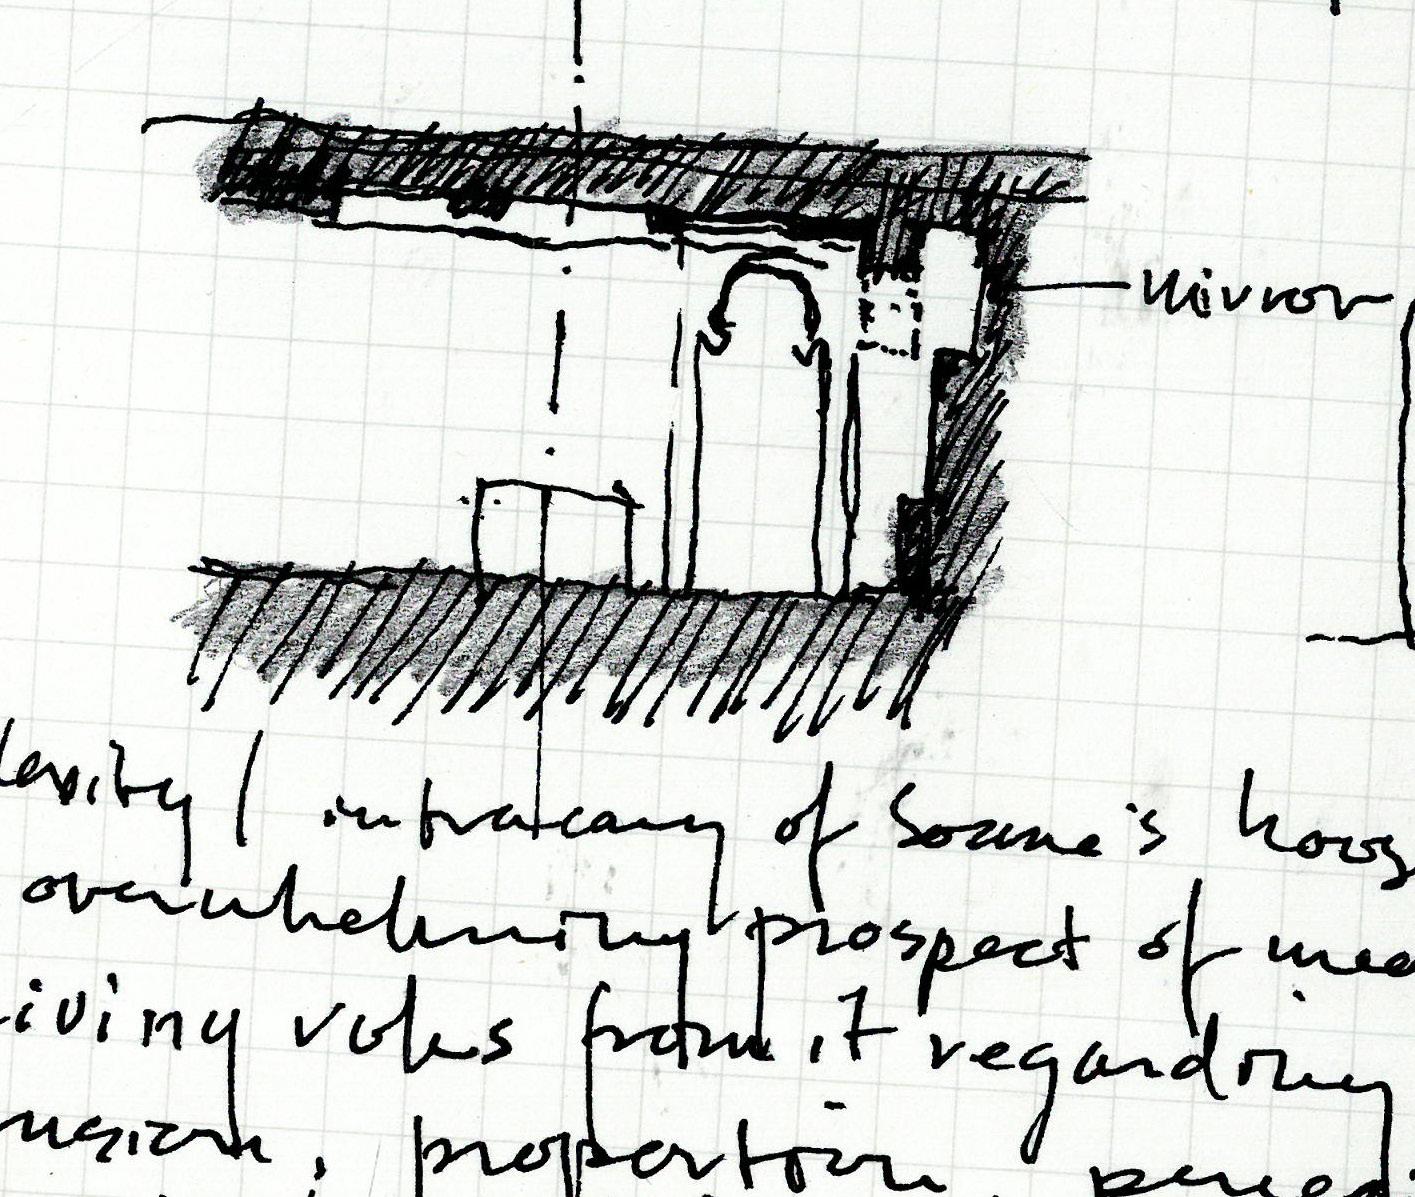 mirror
lexity / intracacy of Soane's hous
overwhelming prospect of mea
iving rules from it regarding
nsion, proportion,